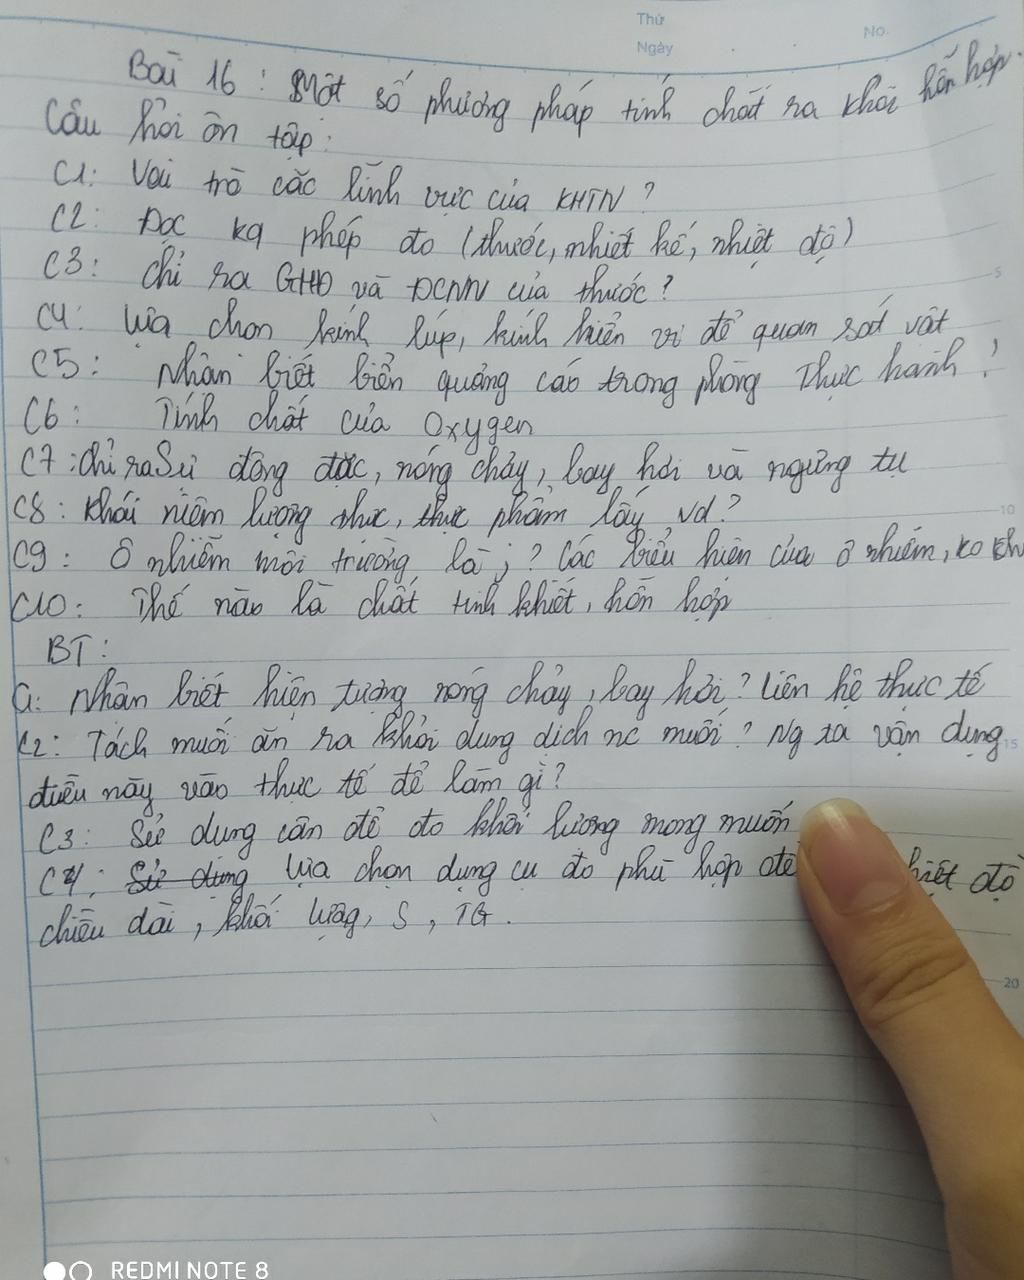 Thứ
Ngày
No.
Bài 16 : Một số phương pháp tính chất ra khỏi hỗn hợp.
Câu hỏi ôn tập :
C1: Vai trò các lĩnh vực của KHTN ?
C2: Đọc kq phép đo (thước, nhiệt kế, nhiệt độ)
C3: Chỉ ra GHĐ và ĐCNN của thước ?
C4: Lựa chọn kính lúp, kính hiển vi để quan sát vật
C5: Nhận biết biển quảng cáo trong phòng Thực hành ?
C6: Tính chất của Oxygen
C7: Chỉ ra Sự đông đặc, nóng chảy, bay hơi và ngưng tụ
C8: Khái niệm lượng thực, thực phẩm lấy vd ?
C9: Ô nhiễm môi trường là j ? Các biểu hiện của ô nhiễm, ko khí
C10: Thế nào là chất tinh khiết, hỗn hợp
BT:
C1: Nhận biết hiện tượng nóng chảy, bay hơi ? Liên hệ thực tế
C2: Tách muối ăn ra khỏi dung dịch nc muối ? Ng ta vận dụng
điều này vào thực tế để làm gì ?
C3: Sử dụng cân để đo khối lượng mong muốn
C4: Sử dụng lựa chọn dụng cụ đo phù hợp để độ
chiều dài, khối lượng, S, TG.
5
10
15
20
REDMI NOTE 8